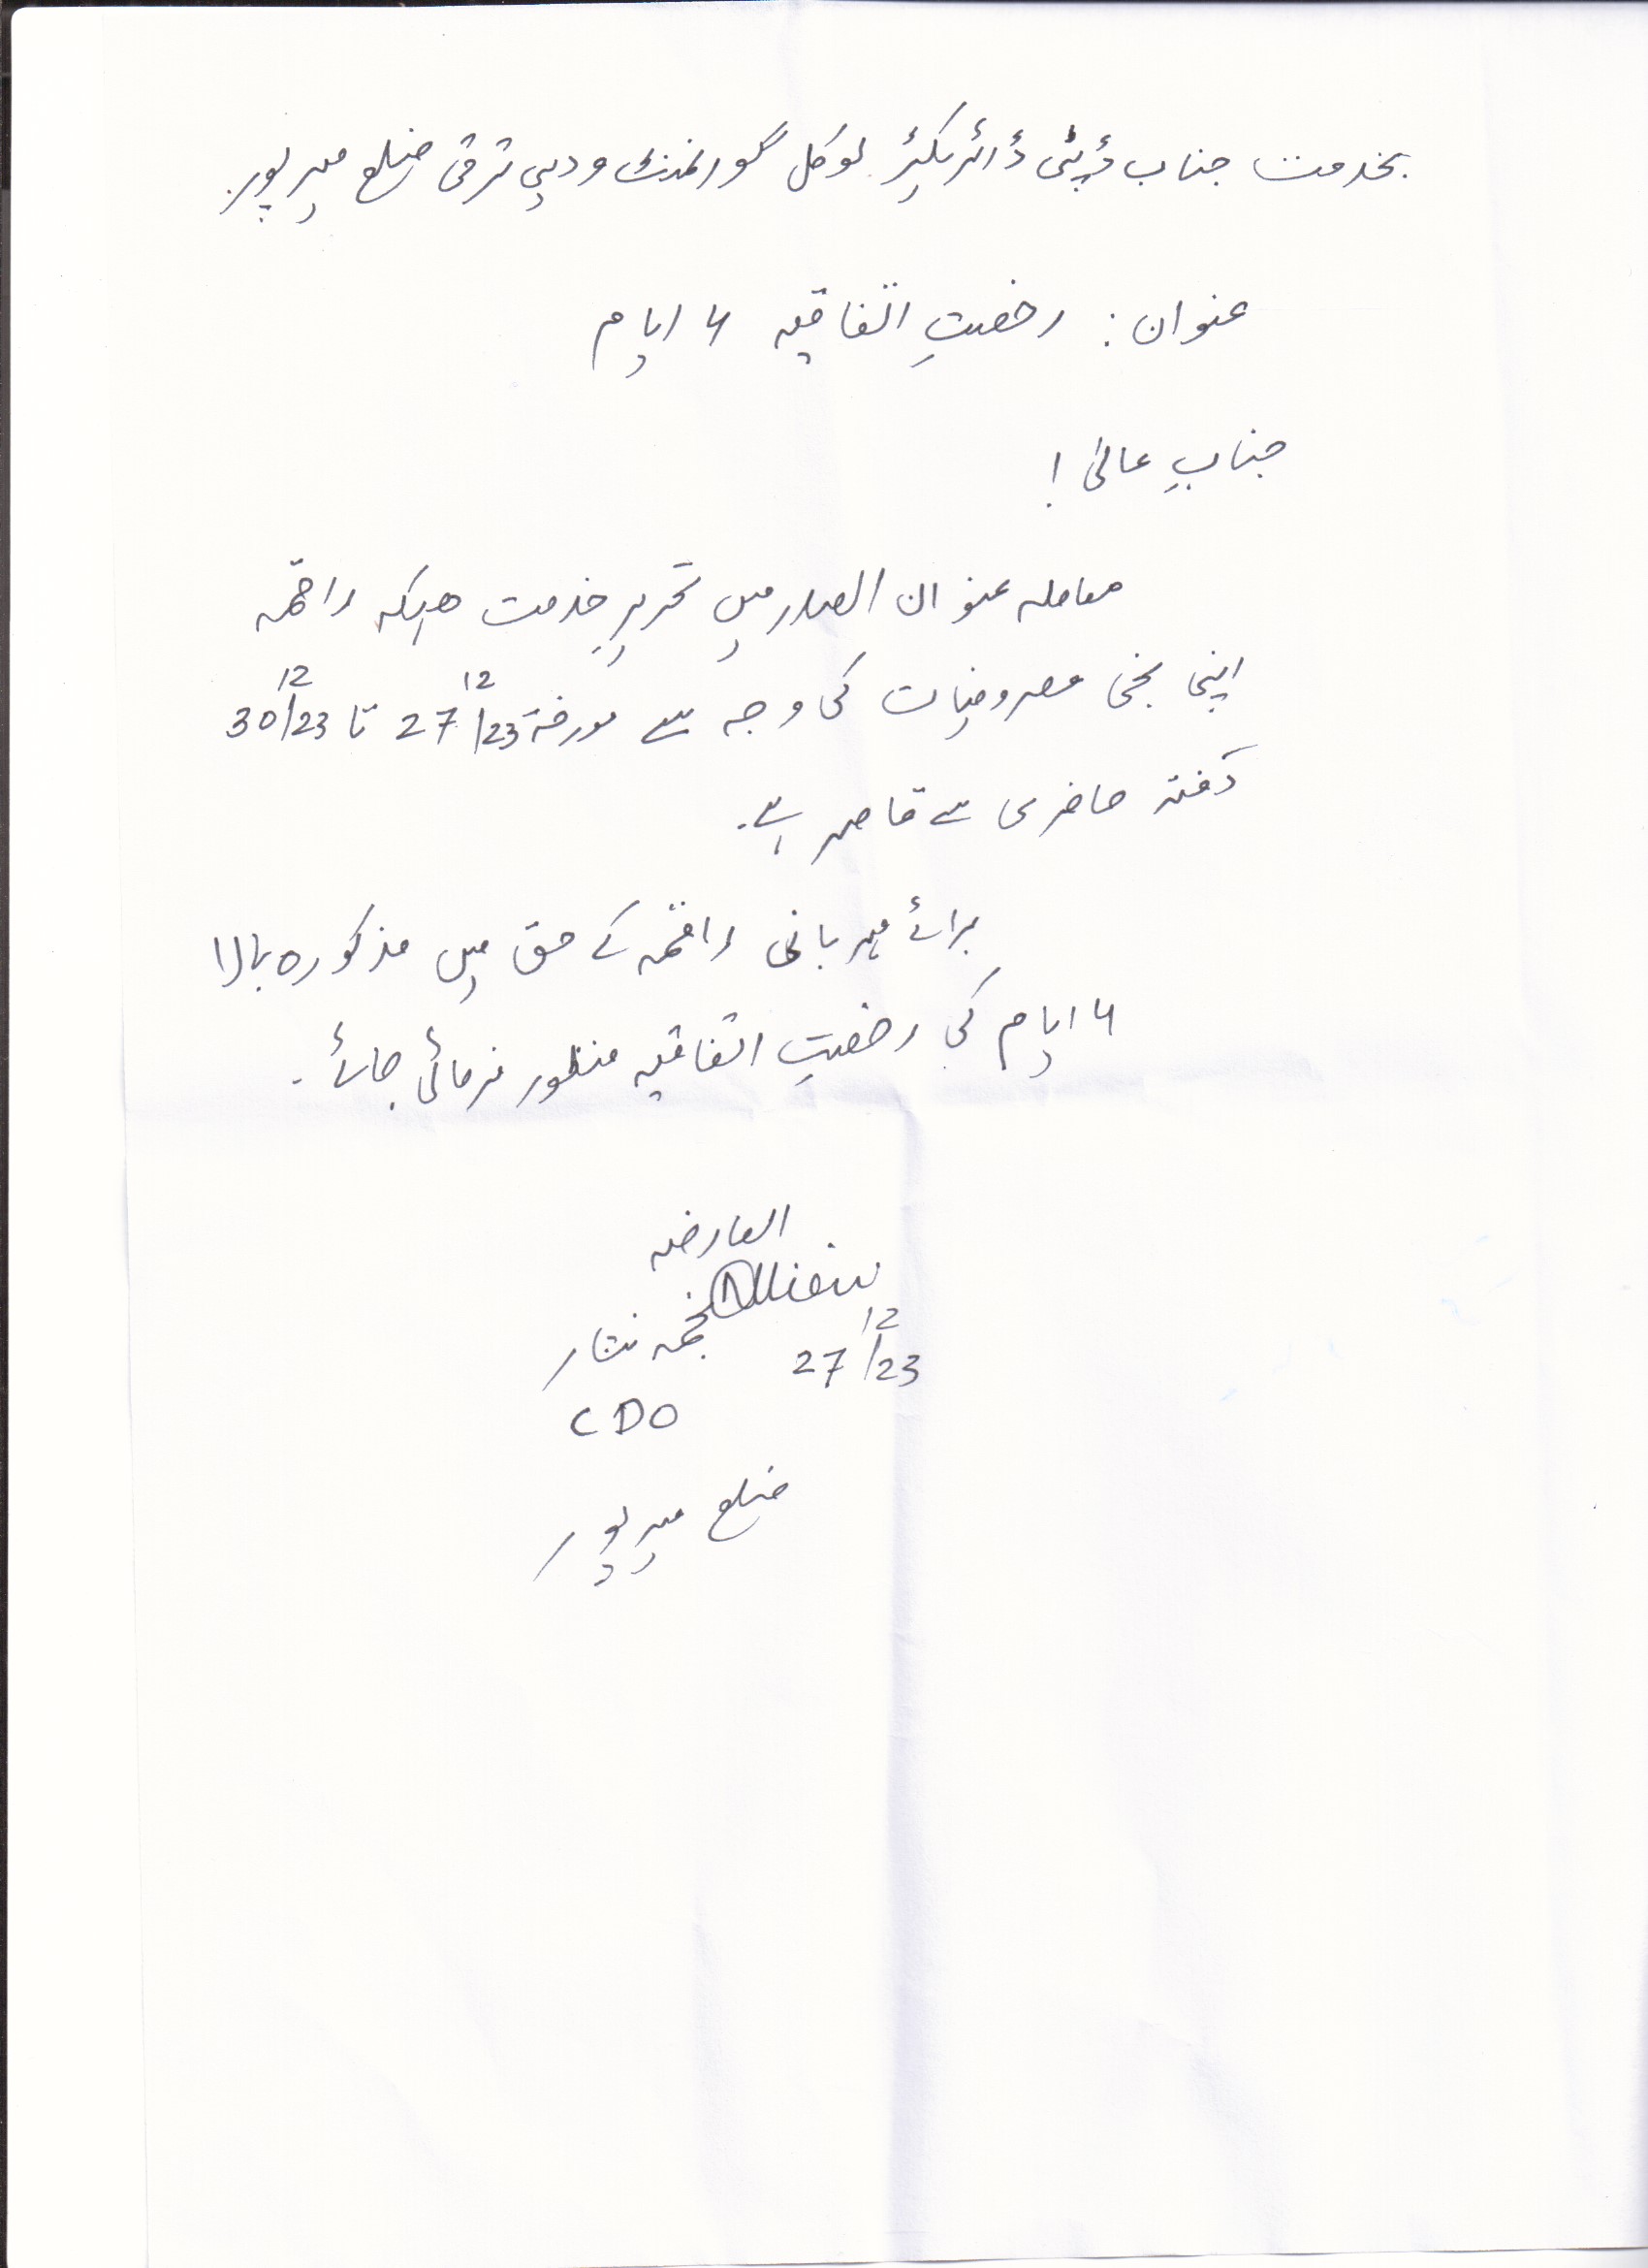 بخدمت جناب ڈپٹی ڈائریکٹر لوکل گورنمنٹ و دیہی ترقی ضلع میرپور۔
عنوان : رخصتِ اتفاقیہ ۴ ایام
جنابِ عالیٰ !
معاملہ عنوان الصدر میں تحریرِ خدمت ھیکہ راقمہ
اپنی نجی مصروفیات کی وجہ سے مورخہ 27/12/23 تا 30/12/23
دفتر حاضری سے قاصر ہے۔
برائے مہربانی راقمہ کے حق میں مذکورہ بالا
۴ ایام کی رخصتِ اتفاقیہ منظور فرمائی جائے۔
العارضہ
نجمہ نثار
27/12/23
CDO
ضلع میرپور